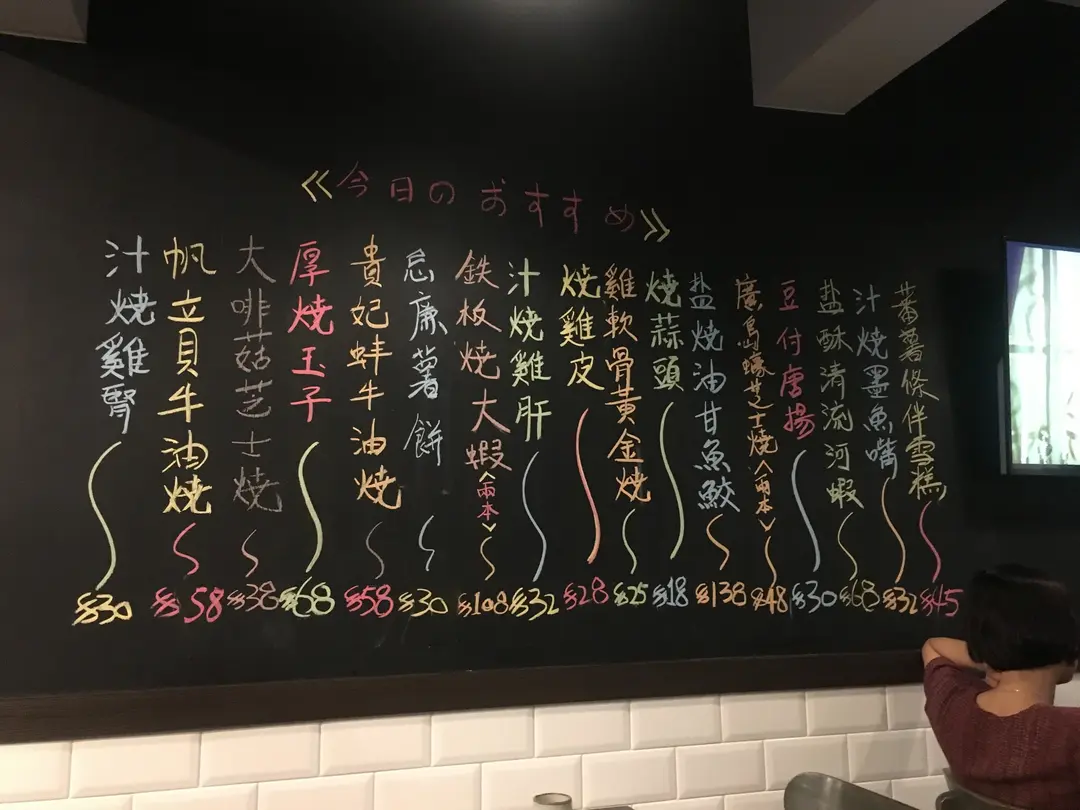 《今日のおすすめ》
蕃薯條伴雪糕 $45
汁燒墨魚嘴 $32
盐酥清流河蝦 $68
豆付唐揚 $30
廣島蠔芝士燒〈兩本〉 $48
盐燒油甘魚鮫 $138
燒蒜頭 $18
雞軟骨黃金燒 $25
燒雞皮 $28
汁燒雞肝 $32
鉄板燒大蝦〈兩本〉 $108
忌廉薯餅 $30
貴妃蚌牛油燒 $58
厚燒玉子 $68
大啡菇芝士燒 $38
帆立貝牛油燒 $58
汁燒雞腎 $30